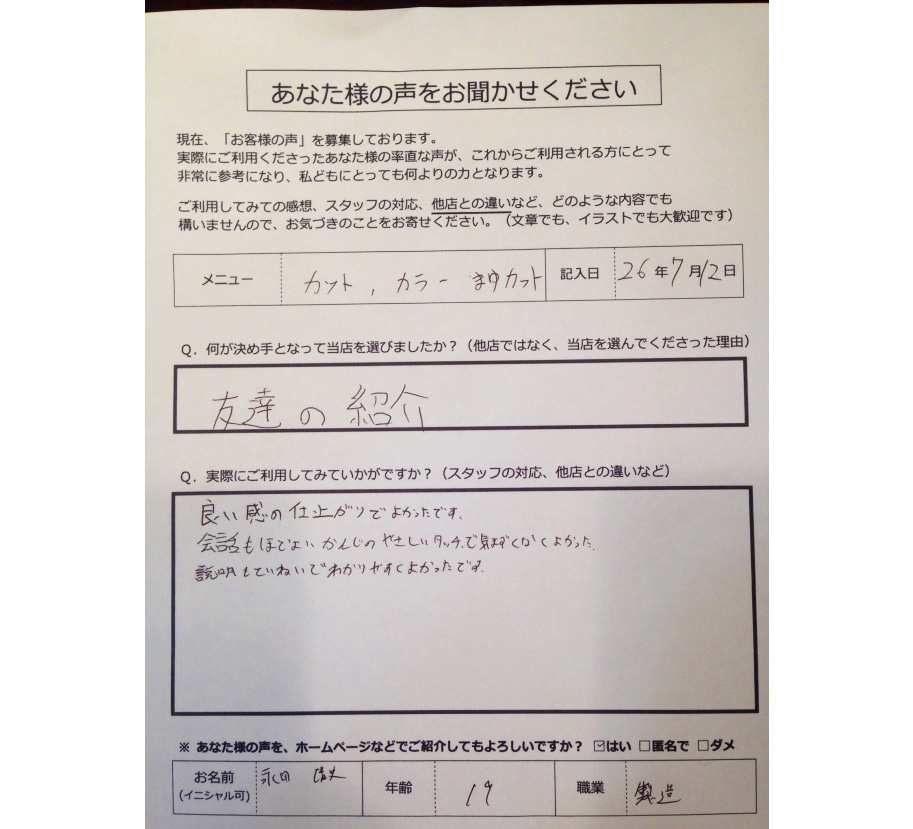 あなた様の声をお聞かせください
現在、「お客様の声」を募集しております。
実際にご利用くださったあなた様の率直な声が、これからご利用される方にとって
非常に参考になり、私どもにとっても何よりの力となります。
ご利用してみての感想、スタッフの対応、他店との違いなど、どのような内容でも
構いませんので、お気づきのことをお寄せください。（文章でも、イラストでも大歓迎です）
メニュー カット，カラー まゆカット 記入日 26年7月12日
Q．何が決め手となって当店を選びましたか？（他店ではなく、当店を選んでくださった理由）
友達の紹介
Q．実際にご利用してみていかがですか？（スタッフの対応、他店との違いなど）
良い感の仕上がりでよかったです。
会話もほどよいかんじのやさしいタッチで気まずくなくよかった。
説明もていねいでわかりやすくよかったです。
※ あなた様の声を、ホームページなどでご紹介してもよろしいですか？ ☑はい □匿名で □ダメ
お名前 永田 年齢 19 職業 製造
(イニシャル可)